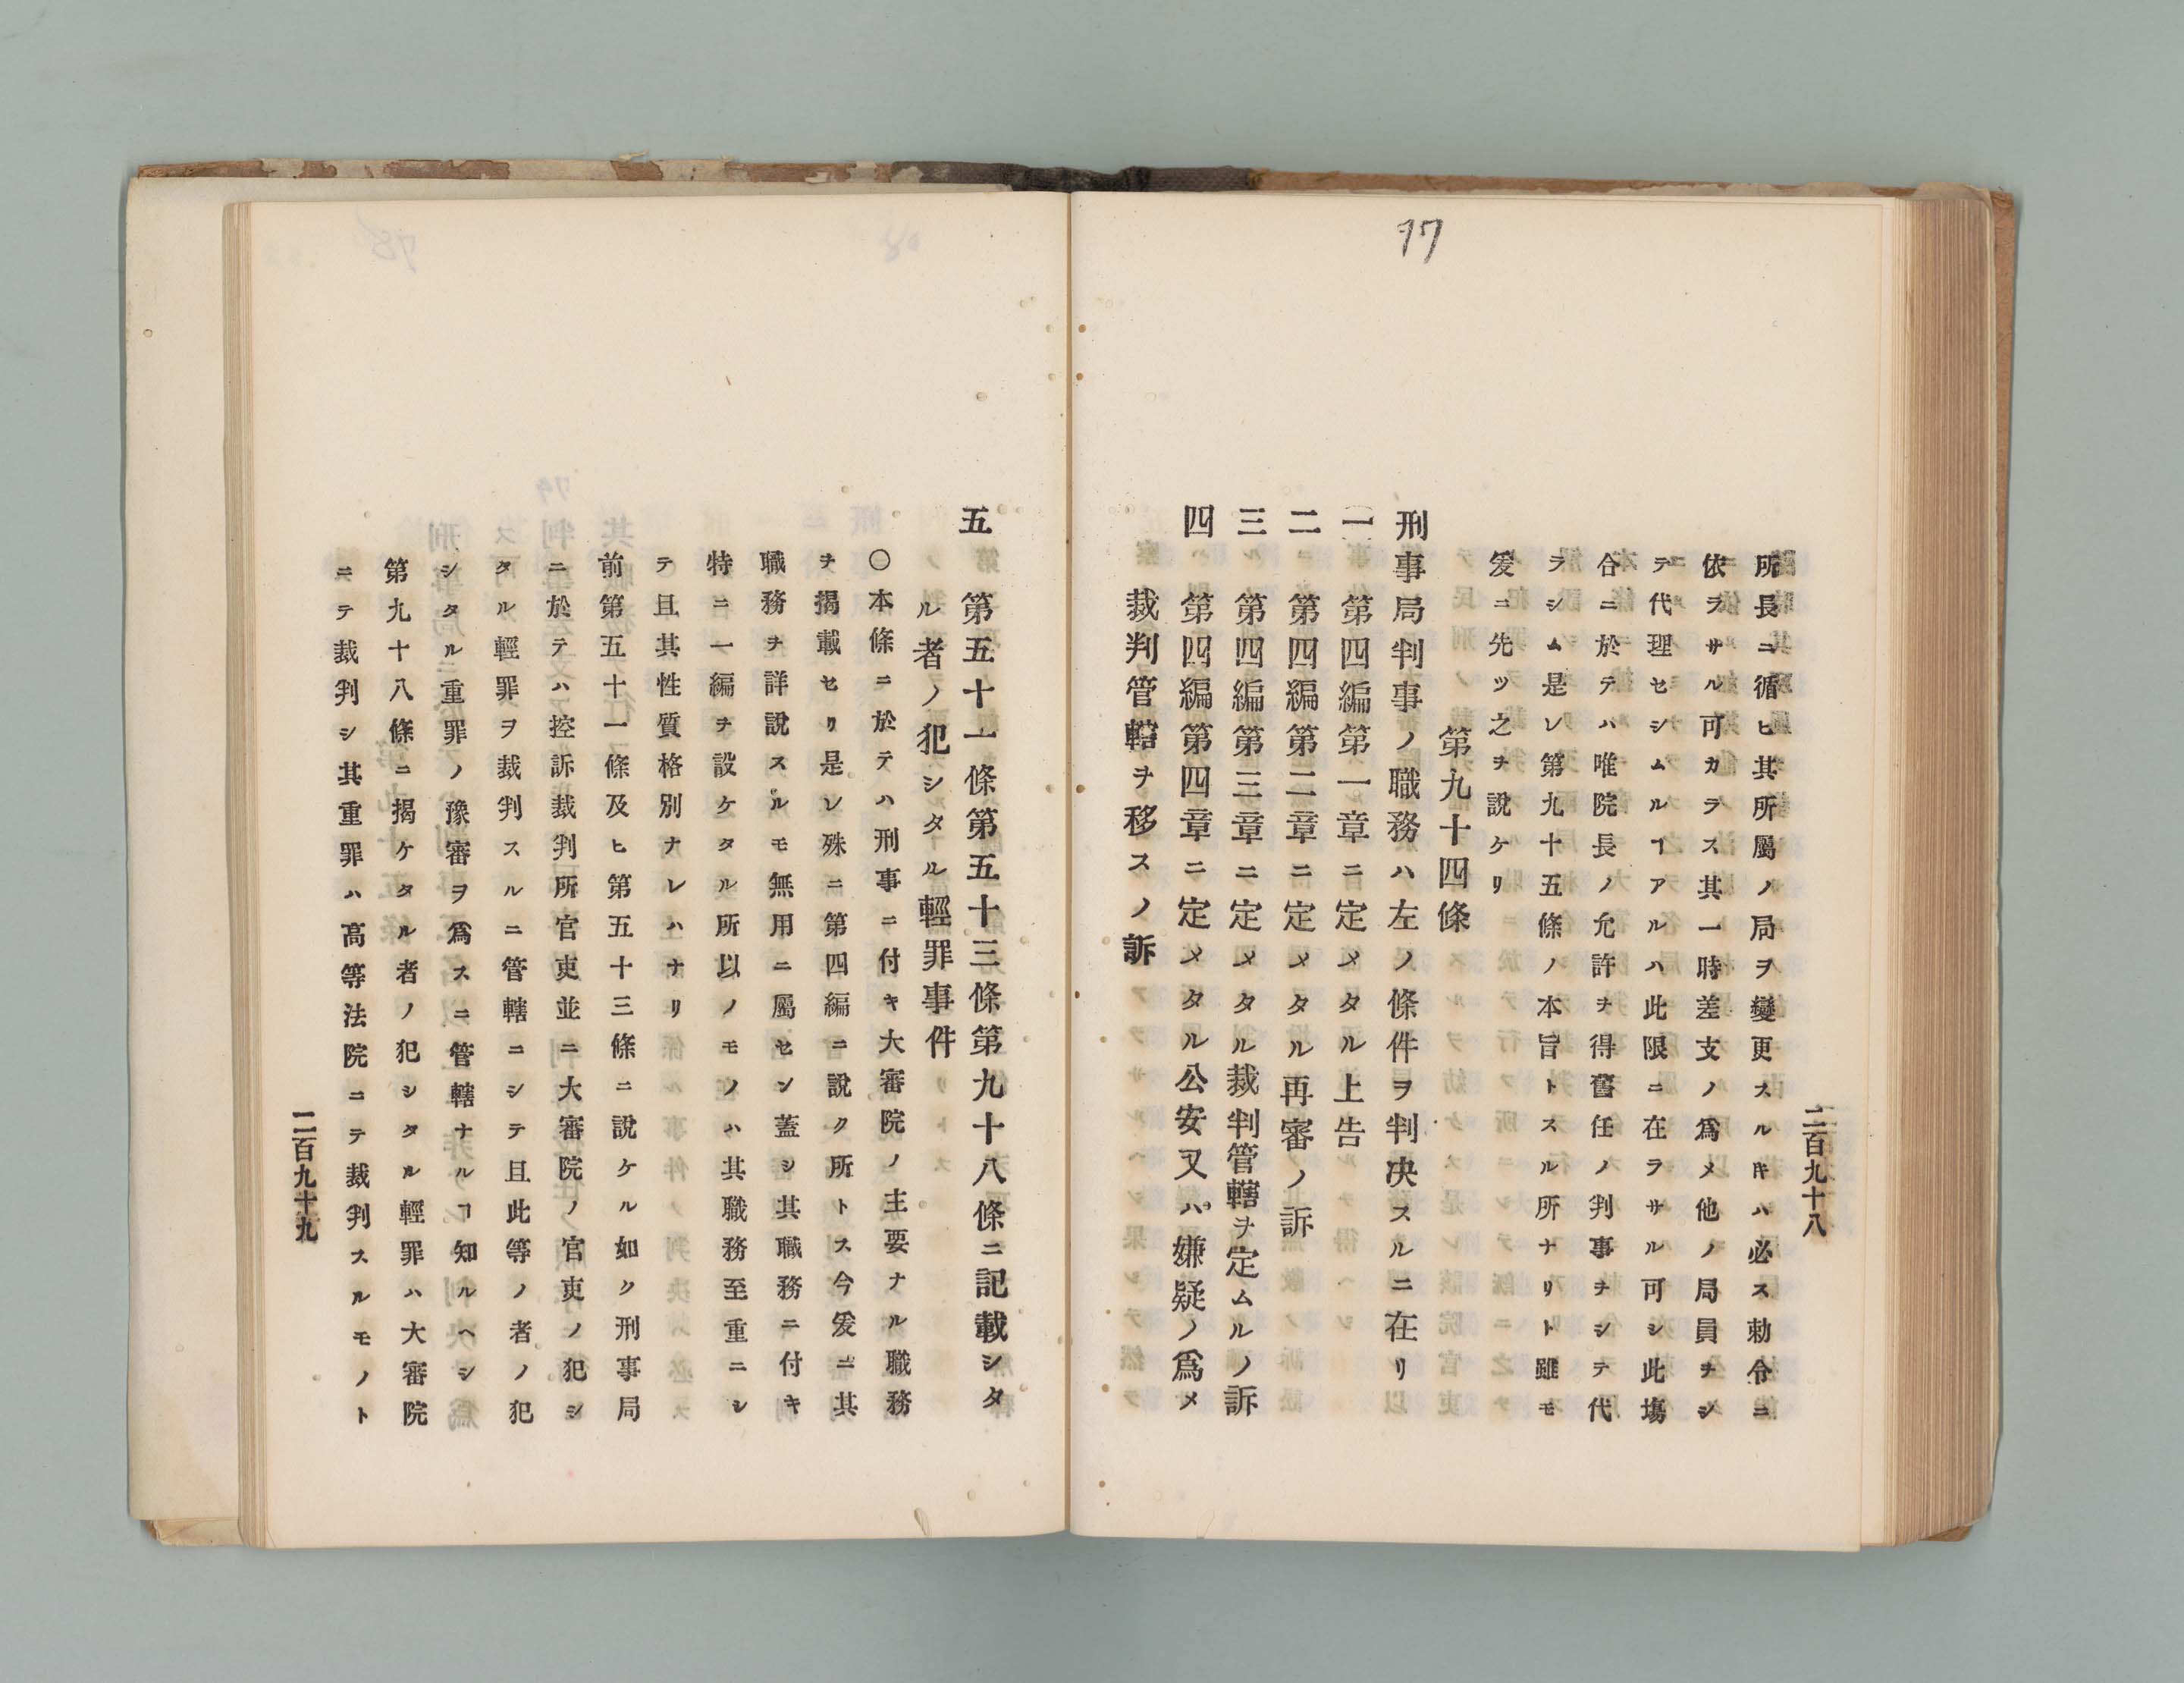 77
二百九十八
所長ニ循ヒ其所屬ノ局ヲ變更スルヿキハ必ス勅令ニ
依ラサル可カラス其一時差支ノ爲メ他ノ局員ヲシ
テ代理セシムルヿアルハ此限ニ在ラサル可シ此塲
合ニ於テハ唯院長ノ允許ヲ得舊任ノ判事ヲシテ代
ラシム是レ第九十五條ノ本旨トスル所ナリト雖モ
爰ニ先ツ之ヲ說ケリ
第九十四條
刑事局判事ノ職務ハ左ノ條件ヲ判决スルニ在リ
一 第四編第一章ニ定メタル上告
二 第四編第二章ニ定メタル再審ノ訴
三 第四編第三章ニ定メタル裁判管轄ヲ定ムルノ訴
四 第四編第四章ニ定メタル公安又ハ嫌疑ノ爲メ
裁判管轄ヲ移スノ訴
五 第五十一條第五十三條第九十八條ニ記載シタ
ル者ノ犯シタル輕罪事件
〇本條ニ於テハ刑事ニ付キ大審院ノ主要ナル職務
ヲ揭載セリ是レ殊ニ第四編ニ說ク所トス今爰ニ其
職務ヲ詳說スルモ無用ニ屬セン蓋シ其職務ニ付キ
特ニ一編ヲ設ケタル所以ノモノハ其職務至重ニシ
テ且其性質格別ナレハナリ
前第五十一條及ヒ第五十三條ニ說ケル如ク刑事局
ニ於テハ控訴裁判所官吏並ニ大審院ノ官吏ノ犯シ
タル輕罪ヲ裁判スルニ管轄ニシテ且此等ノ者ノ犯
シタル重罪ノ豫審ヲ爲スニ管轄ナルヿ知ルヘシ
第九十八條ニ揭ケタル者ノ犯シタル輕罪ハ大審院
ニテ裁判シ其重罪ハ高等法院ニテ裁判スルモノト
二百九十九